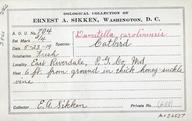 OOLOGICAL COLLECTION OF
ERNEST A. SIKKEN, WASHINGTON, D. C.
A. O. U. No. 704
Dumetella carolinensis
Set Mark 4/4
Catbird
Date 5-23-19
Incubation Fresh
Locality East Riverdale, P. G. Co. Md.
Nest 6 ft. from ground in thick honey suckle
vine
Collector E. A. Sikken